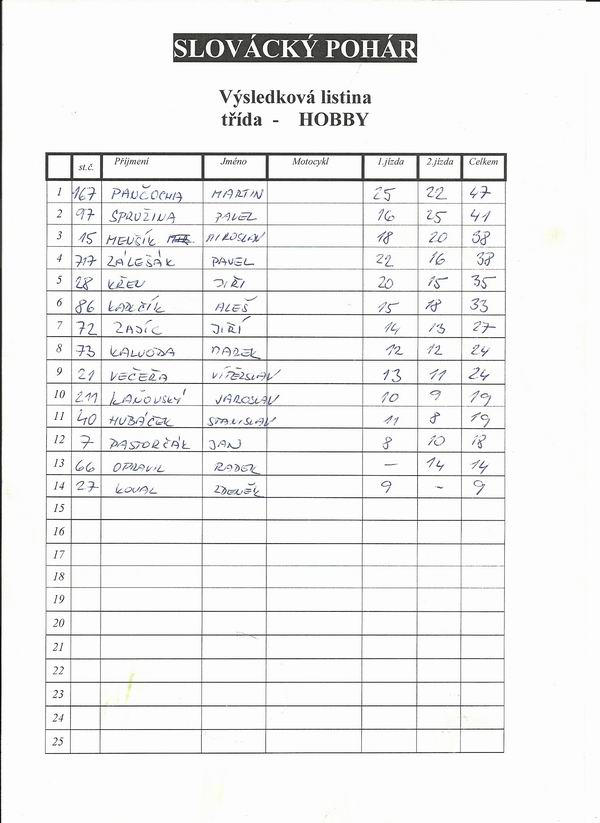 SLOVÁCKÝ POHÁR
Výsledková listina
třída - HOBBY
st.č. Příjmení Jméno Motocykl 1.jízda 2.jízda Celkem
1 167 PANČOCHA MARTIN 25 22 47
2 97 SPRUŽINA PAVEL 16 25 41
3 15 MENŠÍK MIROSLAV 18 20 38
4 717 ZÁLEŠÁK PAVEL 22 16 38
5 28 KŘEN JIŘI 20 15 35
6 86 ALEŠ 15 18 33
7 72 ZAJÍC JIŘÍ 14 13 27
8 73 KALVODA MAREK 12 12 24
9 21 VEČEŘA VÍTĚZSLAV 13 11 24
10 211 KAŇOVSKÝ JAROSLAV 10 9 19
11 40 HUBÁČEK STANISLAV 11 8 19
12 7 PASTORČÁK JAN 8 10 18
13 66 OPRAVIL RADEK — 14 14
14 27 KOVAL ZDENĚK 9 - 9
15
16
17
18
19
20
21
22
23
24
25